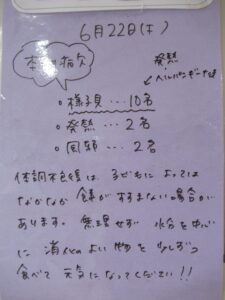 6月22日(木)
本日の病欠
発熱
ヘルパンギーナなど
○ 様子見 … 10名
○ 発熱 … 2名
○ 風邪 … 2名
体調不良後は、子どもによっては
なかなか 食が すすまない場合が
あります。無理せず 水分を 中心
に 消化のよい 物を 少しずつ
食べて 元気に なってください!!